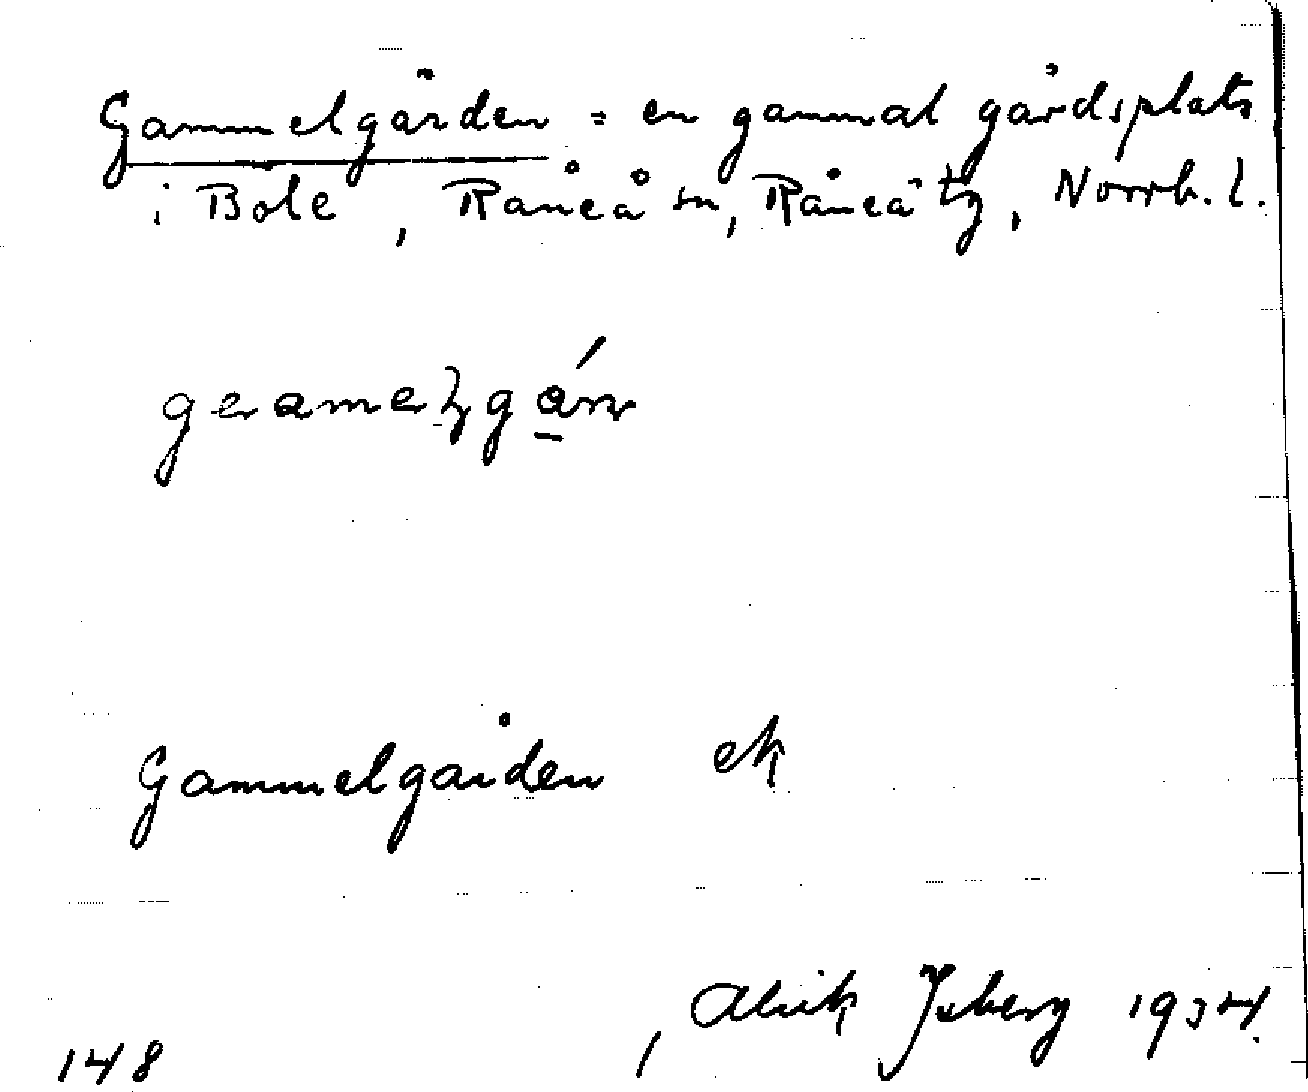 Gammelgården = en gammal gårdsplats
i Böle, Råneå sn, Råneå tg, Norrb. l.
Gammelgården ek
Alrik Isberg 1934.
148